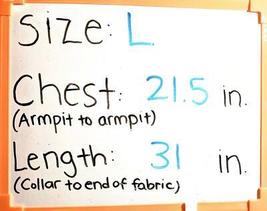 Size: L
Chest: 21.5 in.
(Armpit to armpit)
Length: 31 in.
(Collar to end of fabric)